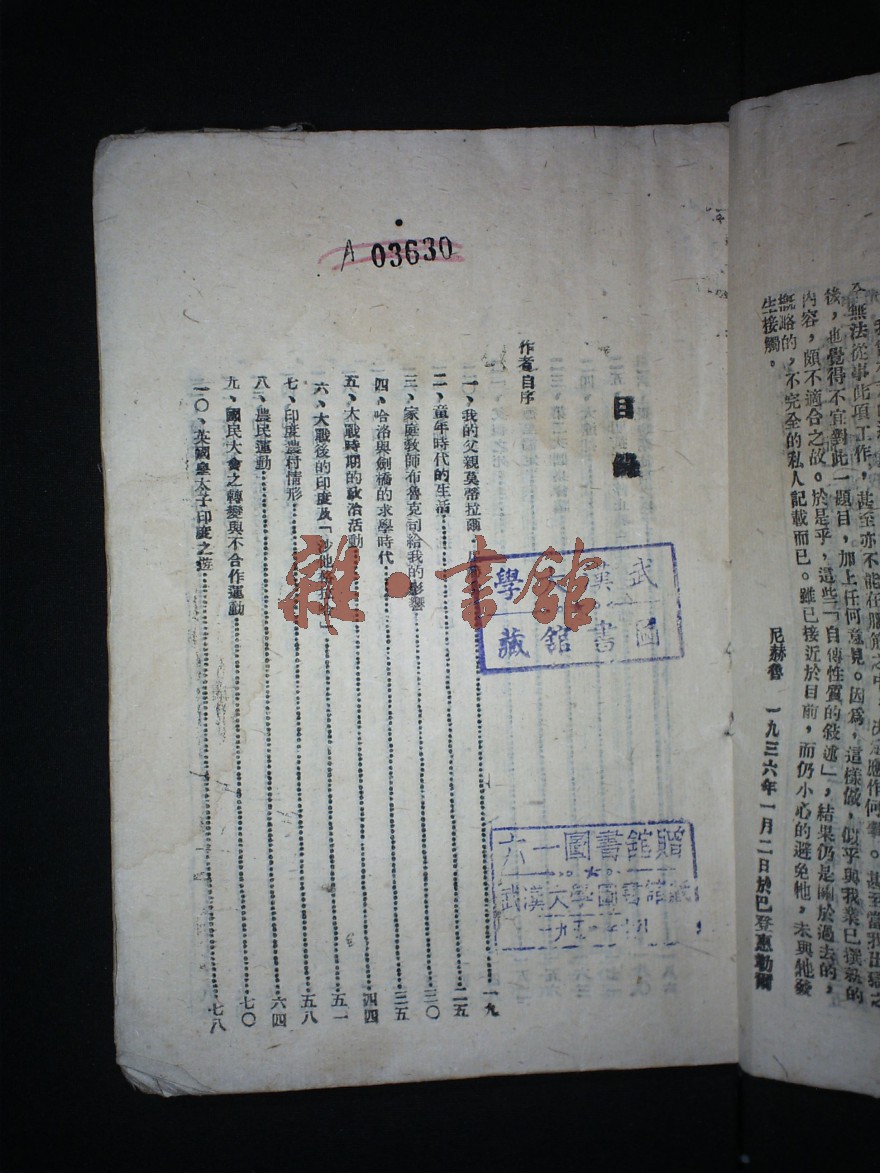 生接觸。
概略的，不完全的私人記載而已。雖已接近於目前，而仍小心的避免牠，未與牠發
內容，頗不適合之故。於是乎，這些「自傳性質的敍述」，結果仍是關於過去的，
後，也覺得不宜對此一題目，加上任何意見。因爲，這樣做，似乎與我業已撰就的
全無法從事此項工作，甚至亦不能在腦筋之中，決定應作何事。甚至當我出獄之
尼赫魯 一九三六年一月二日於巴登惠勒爾
A 03630
目錄
作者自序
一、我的父親莫蒂拉爾 一九
二、童年時代的生活 二五
三、家庭敎師布魯克司給我的影響 三〇
四、哈洛與劍橋的求學時代 三五
五、大戰時期的政治活動 四四
六、大戰後的印度及「沙地 五一
七、印度農村情形 五八
八、農民運動 六四
九、國民大會之轉變與不合作運動 七〇
一〇、英國皇太子印度之遊 七八
武漢大學
圖書館藏
六一圖書館贈
武漢大學圖書館藏
雜·書館